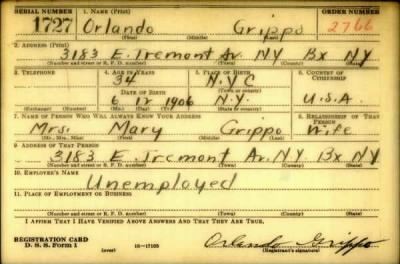 SERIAL NUMBER 1. NAME (Print) ORDER NUMBER
1727 Orlando Grippo 2766
(First) (Middle) (Last)
2. ADDRESS (Print)
3183 E. Tremont Av. NY Bx NY
(Number and street or R. F. D. number) (Town) (County) (State)
3. TELEPHONE 4. AGE IN YEARS 5. PLACE OF BIRTH 6. COUNTRY OF CITIZENSHIP
34 N.Y.C
DATE OF BIRTH (Town or county)
6 12 1906 N.Y. U.S.A.
(Exchange) (Number) (Mo.) (Day) (Yr.) (State or country)
7. NAME OF PERSON WHO WILL ALWAYS KNOW YOUR ADDRESS 8. RELATIONSHIP OF THAT PERSON
Mrs. Mary Grippo Wife
(Mr., Mrs., Miss) (First) (Middle) (Last)
9. ADDRESS OF THAT PERSON
3183 E. Tremont Av. NY Bx NY
(Number and street or R. F. D. number) (Town) (County) (State)
10. EMPLOYER'S NAME
Unemployed
11. PLACE OF EMPLOYMENT OR BUSINESS
(Number and street or R. F. D. number) (Town) (County) (State)
I AFFIRM THAT I HAVE VERIFIED ABOVE ANSWERS AND THAT THEY ARE TRUE.
REGISTRATION CARD
D. S. S. Form 1 (over) 16—17105 Orlando Grippo
(Registrant's signature)